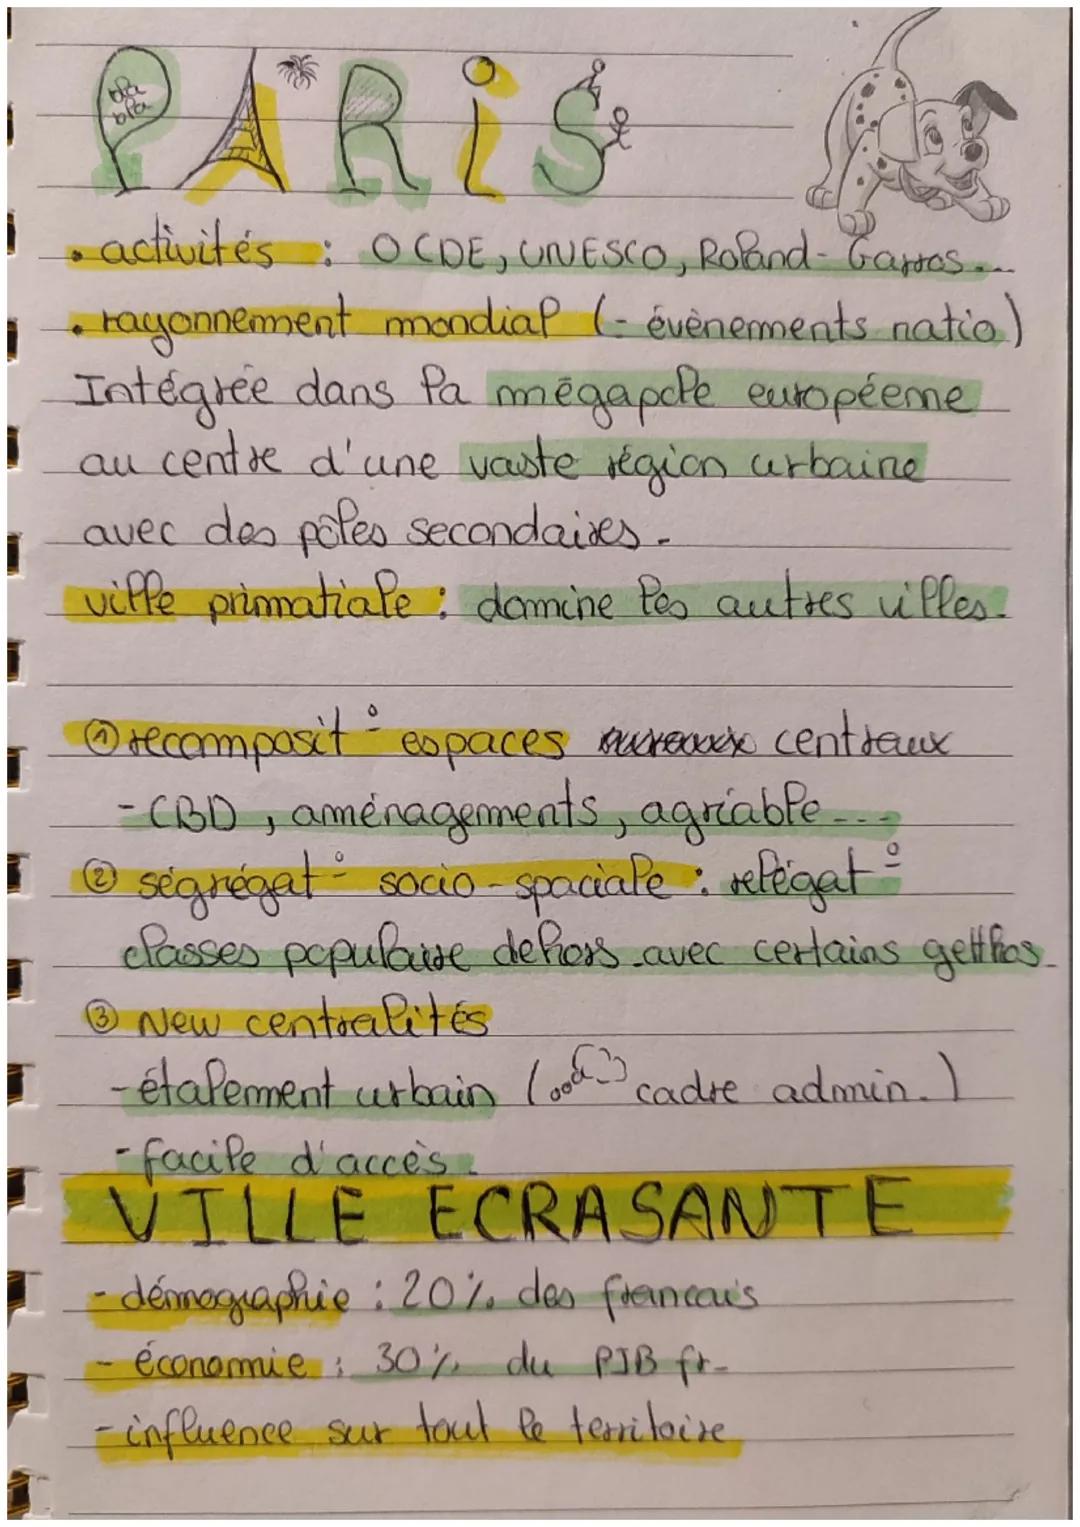 PARiS
bla
bla
• activités : OCDE, UNESCO, Roland-Garros...
• rayonnement mondial (- évènements natio)
Intégrée dans la mégapole européenne
au centre d'une vaste région urbaine
avec des pôles secondaires.
ville primatiale : domine les autres villes.
① recomposit° espaces centraux
- CBD, aménagements, agréable...
② ségrégat° socio-spaciale : relégat°
classes populaire dehors avec certains getthos.
③ New centralités
- étalement urbain ( cadre admin.)
- facile d'accès.
VILLE ECRASANTE
- démographie : 20% des francais
- économie : 30% du PIB fr.
- influence sur tout le territoire